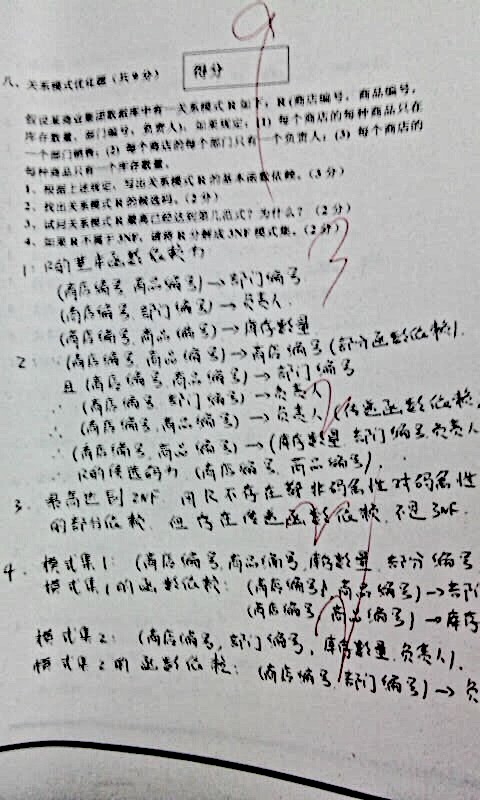 9
八、关系模式优化题（共9分） 得分
假设某商业集团数据库中有一关系模式R如下：R(商店编号，商品编号，
库存数量，部门编号，负责人)，如果规定：(1) 每个商店的每种商品只在
一个部门销售；(2) 每个商店的每个部门只有一个负责人；(3) 每个商店的
每种商品只有一个库存数量。
1、根据上述规定，写出关系模式R的基本函数依赖。(3分)
2、找出关系模式R的候选码。(2分)
3、试问关系模式R最高已经达到第几范式？为什么？(2分)
4、如果R不属于3NF，请将R分解成3NF模式集。(2分)
1. R的基本函数依赖为 3
(商店编号，商品编号)→部门编号
(商店编号，部门编号)→负责人.
(商店编号，商品编号)→库存数量
2. (商店编号，商品编号)→商店编号(部分函数依赖).
且(商店编号，商品编号)→部门编号
∴ (商店编号，部门编号)→负责人
∴ (商店编号，商品编号)→负责人(传递函数依赖
∴ (商店编号，商品编号)→(库存数量，部门编号，负责人
∴ R的候选码为(商店编号，商品编号).
3. 最高达到2NF. 因R不存在非码属性对码属性
的部分依赖，但存在传递函数依赖，不是3NF.
4. 模式集1：(商店编号，商品编号，库存数量，部分编号
模式集1的函数依赖：(商店编号，商品编号)→部门
(商店编号，商品编号)→库存
模式集2：(商店编号，部门编号，库存数量，负责人).
模式集2的函数依赖：(商店编号，部门编号)→负